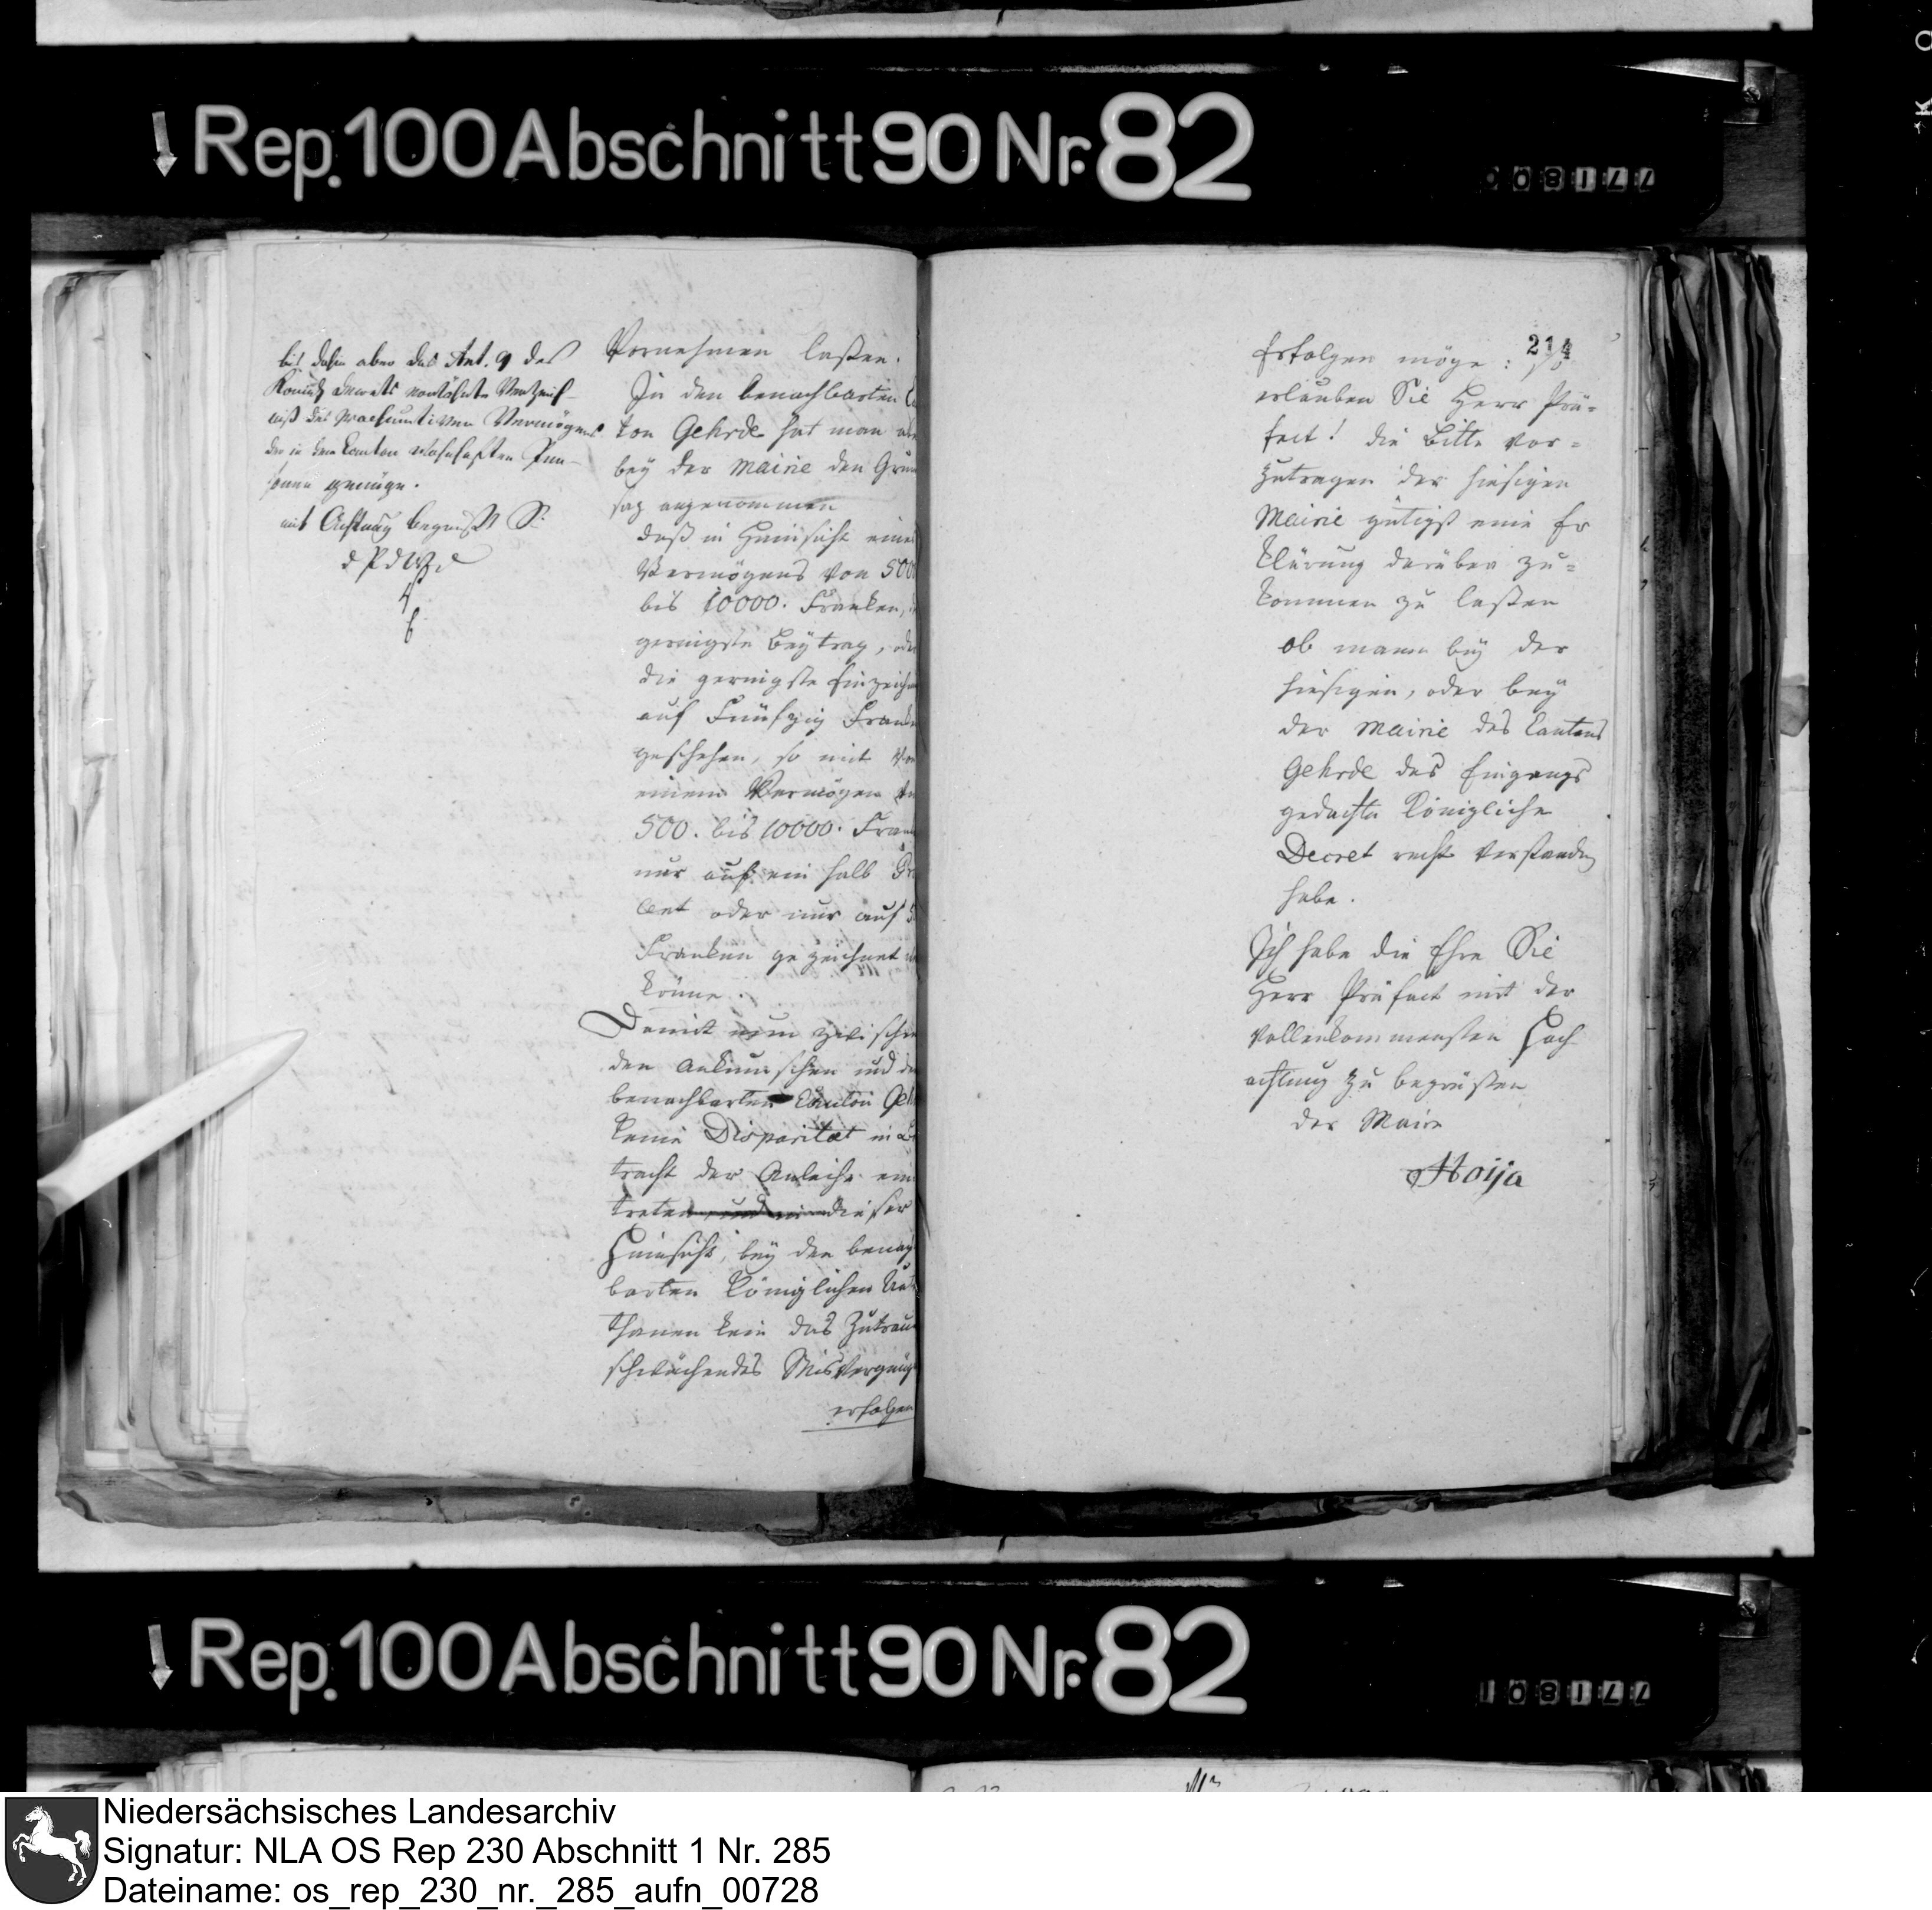 Rep. 100 Abschnitt 90 Nr. 82
008177
bis dahin aber das Art. 9 des
König Decrets Verzeich-
niß des praesumtiven Vermögens
der in dem Canton wohnhaften Per-
sonen genüge.
mit Achtung begrüßt Sie
d P d W D
Vornehmen laßen.
In den benachbarten Ca
ton Gehrde hat man
bey der Mairie den Grun
saz angenommen
daß in Hinsicht eines
Vermögens von 500
bis 10000. Franken,
geringste Beytrag, oder
die geringste Einzeich
auf Fünfzig Franken
geschehen, so mit von
einem Vermögen von
500. bis 10000. Fran
nur auf ein halb Pro
Cent oder nur auf 5
Franken gezeichnet
könne.
Damit nun zwischen
den Ankumschen und de
benachbarten Canton Geh
keine Disparitat in Be
tracht der Anleihe ein
treten und in dieser
Hinsicht, bey den benach
barten Königlichen Unt
thanen kein das Zutrau
schwächendes Misvergnüg
erfolgen
214
Erfolgen möge: so
erlauben Sie Herr Prä=
fect! die Bitte vor=
zutragen der hiesigen
Mairie gütigst eine Er
klärung darüber zu=
kommen zu laßen
ob mann bey der
hiesigen, oder bey
der Mairie des Cantons
Gehrde das Eingangs
gedachte Königliche
Decret recht verstanden
habe.
Ich habe die Ehre Sie
Herr Präfect mit der
Vollenkommensten Hoch
achtung zu begrüßen
der Maire
Hoija
Rep. 100 Abschnitt 90 Nr. 82
108177
Niedersächsisches Landesarchiv
Signatur: NLA OS Rep 230 Abschnitt 1 Nr. 285
Dateiname: os_rep_230_nr._285_aufn_00728